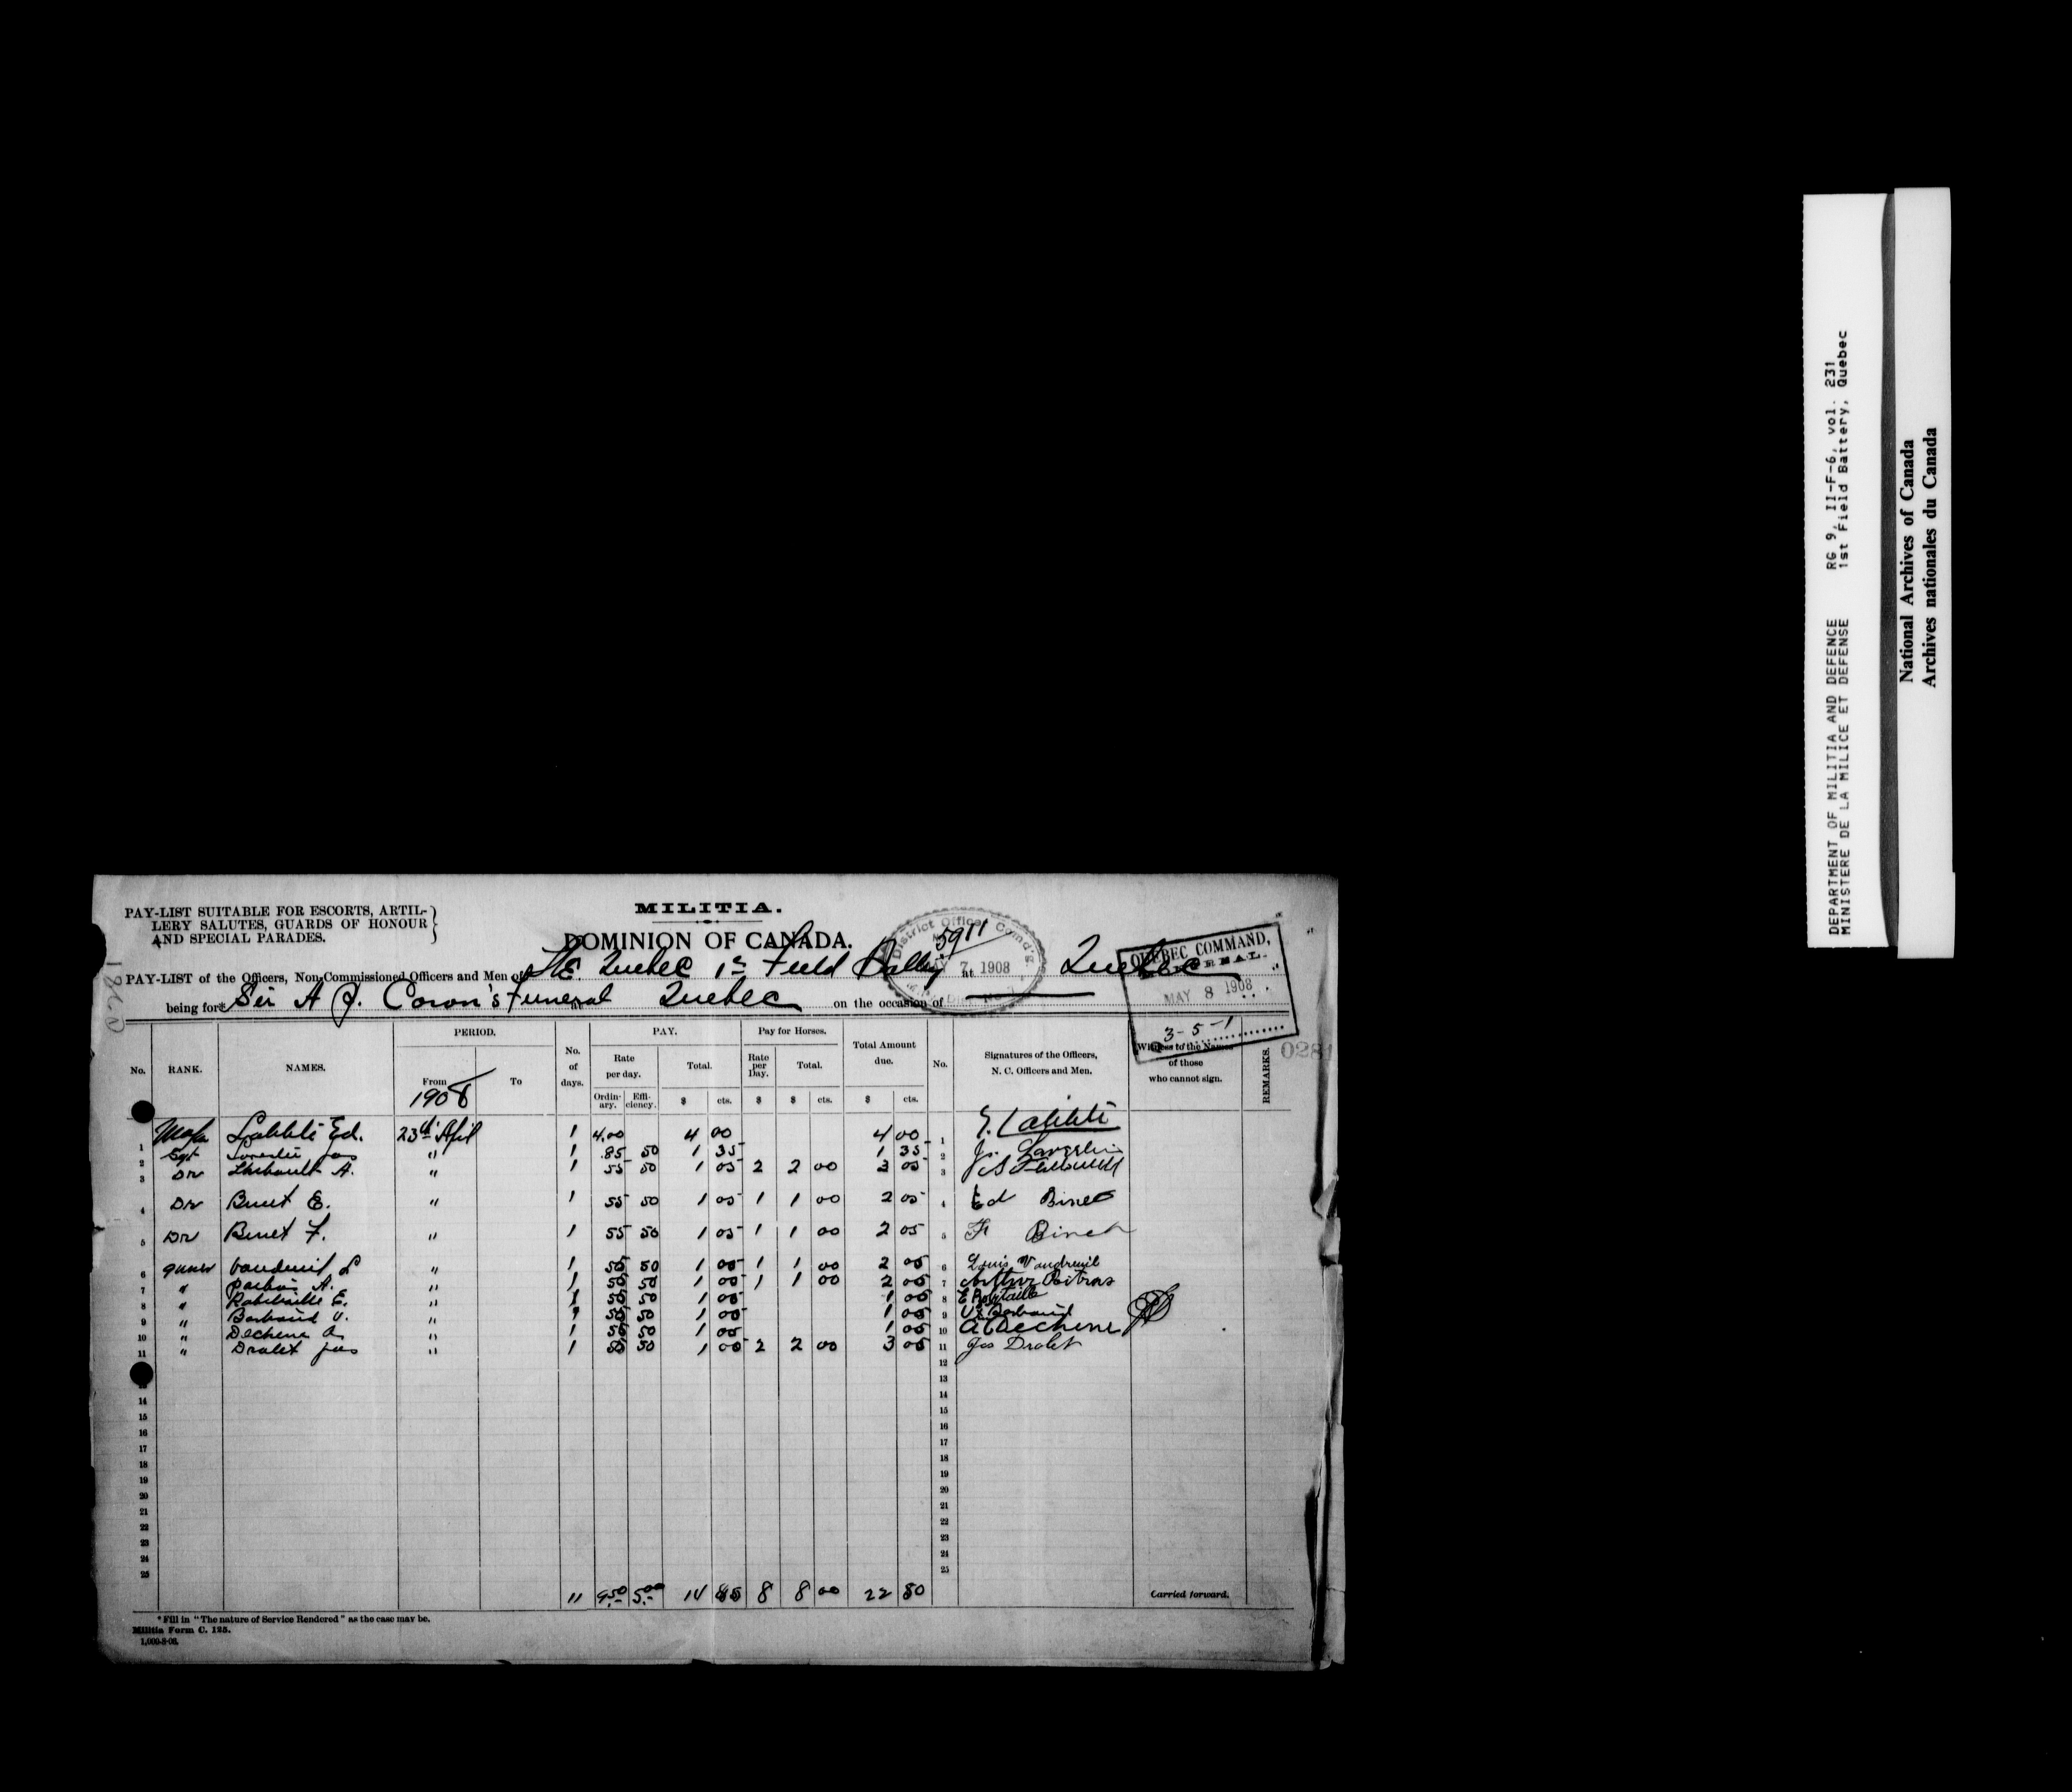 PAY-LIST SUITABLE FOR ESCORTS, ARTIL-
LERY SALUTES, GUARDS OF HONOUR
AND SPECIAL PARADES.
MILITIA.
DOMINION OF CANADA.
District Officer Comd'g.
5911
MAY 7 1908
QUEBEC COMMAND,
MAY 8 1908
3-5-1
PAY-LIST of the Officers, Non-Commissioned Officers and Men of The Quebec 1st Field Battery at Quebec
being for* Sir A P. Caron's Funeral at Quebec on the occasion of
0281
No. RANK. NAMES. PERIOD. From To 1908 No. of days. PAY. Rate per day. Ordin-ary. Effi-ciency. Total. $ cts. Pay for Horses. Rate per Day. $ Total. $ cts. Total Amount due. $ cts. No. Signatures of the Officers, N. C. Officers and Men. Witness to the Names of those who cannot sign. REMARKS.
1 Major Laliberté Ed. 23th April 1 4.00 4 00 4 00 1 E. Laliberté
2 Sgt 1 85 50 1 35 1 35 2
3 Dr Thibault A. " 1 55 50 1 05 2 2 00 3 05 3
4 Dr Binet E. " 1 55 50 1 05 1 1 00 2 05 4 Ed Binet
5 Dr Binet F. " 1 55 50 1 05 1 1 00 2 05 5 F Binet
6 gunner Vaudreuil L " 1 50 50 1 00 1 1 00 2 00 6 Louis Vaudreuil
7 " A. " 1 50 50 1 00 1 1 00 2 00 7 Arthur Poitras
8 " Robitaille E. " 1 50 50 1 00 1 00 8 E Robitaille
9 " U. " 1 50 50 1 00 1 00 9
10 " Dechene A. " 1 50 50 1 00 1 00 10 A Dechene
11 " Drolet Jos " 1 50 50 1 00 2 2 00 3 00 11 Jos Drolet
12
13
14 14
15 15
16 16
17 17
18 18
19 19
20 20
21 21
22 22
23 23
24 24
25 25
11 9.50 5.00 14 8 8 00 22 Carried forward.
*Fill in "The nature of Service Rendered" as the case may be.
Militia Form C. 125.
DEPARTMENT OF MILITIA AND DEFENCE RG 9, II-F-6, vol. 231
MINISTERE DE LA MILICE ET DEFENSE 1st Field Battery, Quebec
National Archives of Canada
Archives nationales du Canada